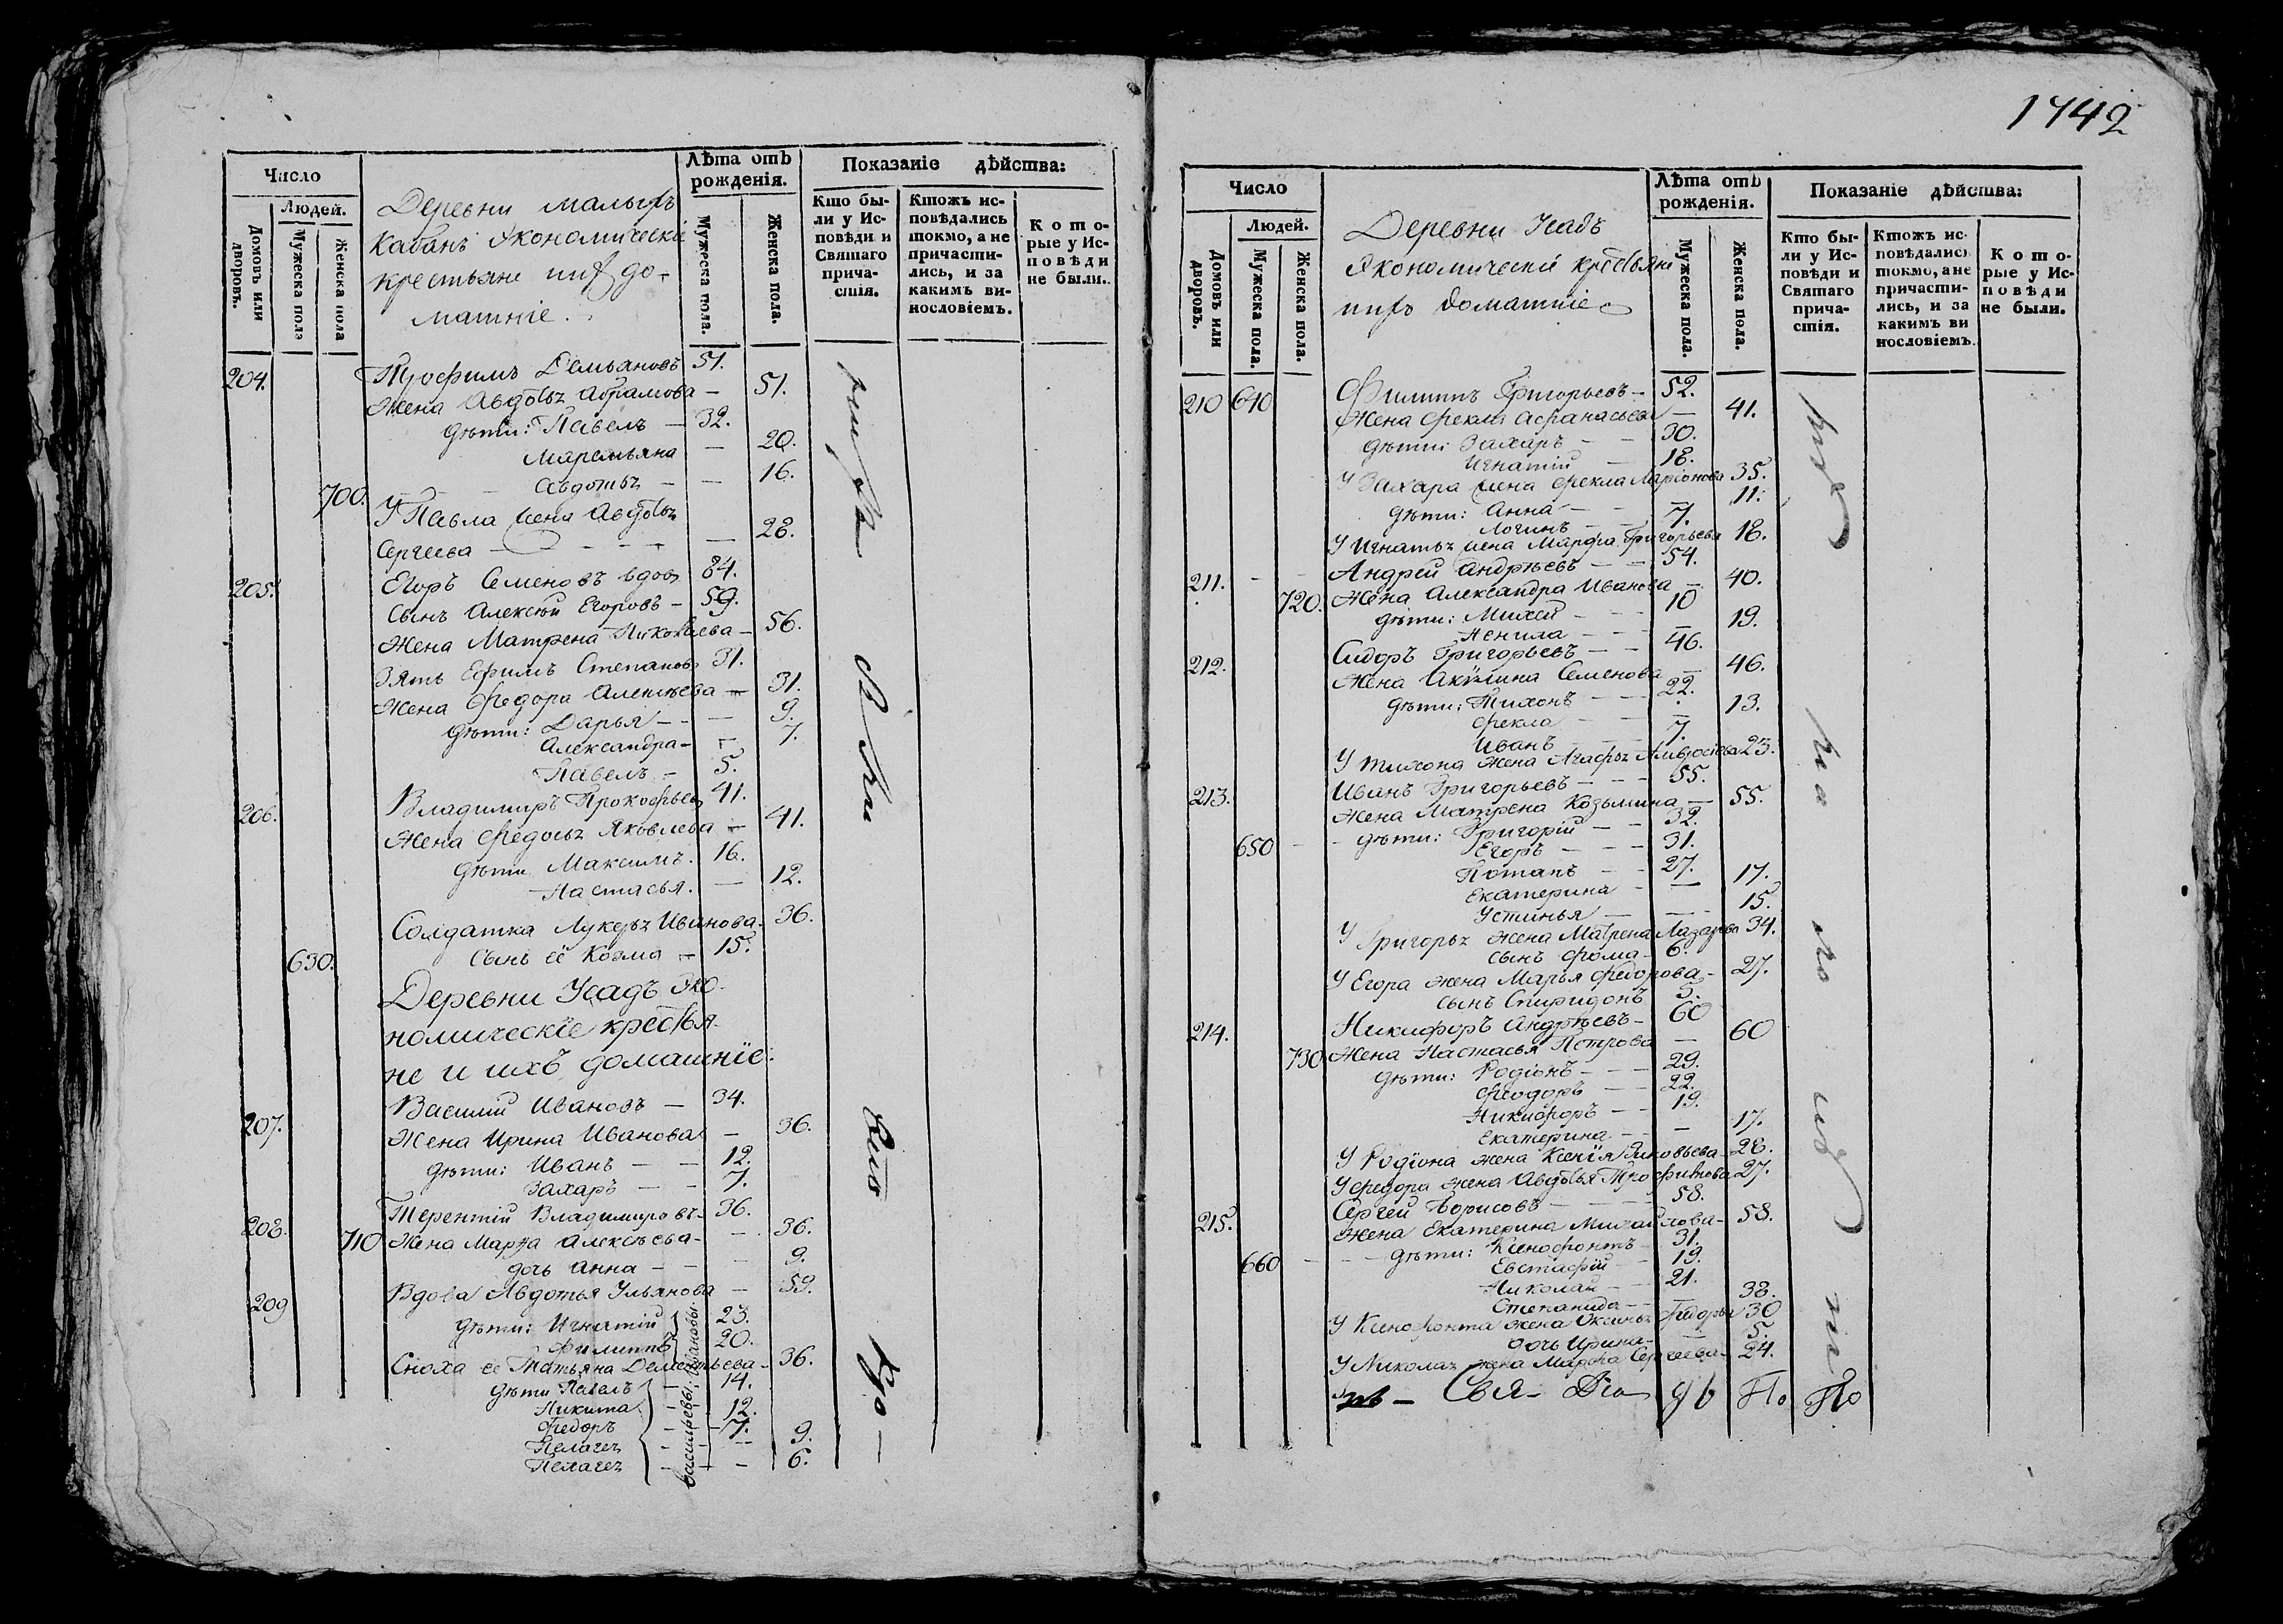 Число
Людей.
Домовъ или дворовъ.
Мужеска пола
Женска пола
Деревни малыхъ
Кабанъ Экономически
крестьяне ихъ до-
машніе.
Лѣта отъ рожденія.
Мужеска пола.
Женска пола.
Показаніе дѣйства:
Кто бы-
ли у Ис-
повѣди и
Святаго
прича-
стія.
Ктожъ ис-
повѣдались
токмо, а не
причасти-
лись, и за
какимъ ви-
нословіемъ.
К о т о-
рые у Ис-
п о в ѣ д и
не были.
204. Трофимъ Демьяновъ 51.
Жена Авдотья Абрамова — 51.
дѣти: Павелъ — 32.
Маремьяна — 20.
700. Авдотья — — 16.
У Павла жена Авдотья
Сергеева — — 28.
205. Егоръ Семеновъ вдов 84.
Сынъ Алексѣй Егоровъ — 59.
Жена Матрена Никонаева — 56.
Зять Ефимъ Степанов 31.
Жена Федора Алексѣева — 31.
дѣти: Дарья — — 9.
Александра — 7.
Павелъ — 5.
206. Владимиръ Прокофьев 41.
Жена Федосья Яковлева — 41.
дѣти Максимъ. 16.
Настасья. — 12.
Солдатка Лукерья Иванова. 36.
630. Сынъ её Козма — 15.
Деревни Усадъ Эко-
номическіе крестья-
не и ихъ домашніе:
207. Василий Ивановъ — 34.
Жена Ирина Иванова — 36.
дѣти: Иванъ — — 12.
Захаръ — — 7.
208. Терентій Владимировъ 36.
710 Жена Марфа Алексѣева — 36.
дочь Анна — — 9.
209 Вдова Авдотья Ульянова — 59.
дѣти: Игнатій 23.
Филиппъ 20.
Ивановы.
Сноха ее Татьяна Дементьева — 36.
дѣти Павелъ — 14.
Никита — 12.
Федоръ — 7.
Пелагея — 9.
Пелагея — 6.
Васильевы
1742
Число
Людей.
Домовъ или дворовъ.
Мужеска пола.
Женска пола.
Деревни Усадъ
Экономическіе крестьяне
ихъ домашніе
Лѣта отъ рожденія.
Мужеска пола.
Женска пола.
Показаніе дѣйства:
Кто бы-
ли у Ис-
повѣди и
Святаго
прича-
стія.
Ктожъ ис-
повѣдались
токмо, а не
причасти-
лись, и за
какимъ ви
нословіемъ.
К о т о-
рые у Ис-
п о в ѣ д и
не были.
210 640 Филиппъ Григорьевъ — 52.
Жена Фекла Афанасьева — 41.
дѣти: Захаръ — — 30.
Игнатій — 18.
У Захара жена Фекла Ларіонова 35.
дѣти: Анна — — 11.
Логинъ — — 7.
У Игнатья жена Марфа Григорьева 18.
211. Андрей Андрѣевъ — — 54.
720. Жена Александра Иванова — 40.
дѣти: Михей — — 10
Ненила — — 19.
212. Сидоръ Григорьевъ — — 46.
Жена Акулина Семенова — 46.
дѣти: Тихонъ — — 22.
Фекла — — 13.
Иванъ — — 7.
У Тихона жена Агафья Амвросіева 23.
213. Иванъ Григорьевъ — — 55.
Жена Матрена Козьмина — 55.
дѣти: Григорій — — 32.
650 Егоръ — — 31.
Потапъ — — 27.
Екатерина — — 17.
Устинья — — 15.
У Григорья жена Матрена Лазарева 34.
сынъ Фома — 6.
У Егора жена Марья Федорова — 27.
сынъ Спиридонъ 5.
214. Никифоръ Андрѣевъ — 60
730 Жена Настасья Петрова — 60
дѣти: Родіонъ — — 29.
Феодоръ — — 22.
Никифоръ — — 19.
Екатерина — — 17.
У Родіона жена Ксенія Яковьева 28.
У Федора жена Авдотья Трофимова 27.
215. Сергей Борисовъ — — 58.
Жена Екатерина Михайлова — 58.
дѣти: Ксенофонтъ 31.
660 Евстафій — 19.
Николай — 21.
Степанида — — 38.
У Ксенофонта жена Оксинья Федорова 30
дочь Ирина — 5.
У Николая жена Марфа Сергеева — 24.